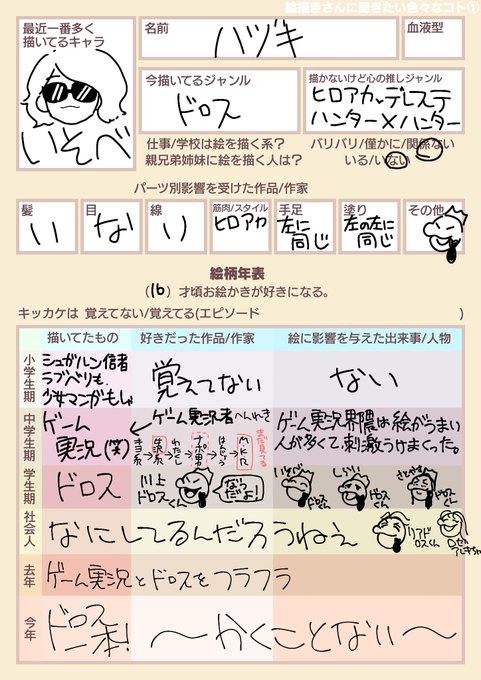 絵描きさんに聞きたい色々なコト①
最近一番多く
描いてるキャラ
いそべ
名前
ハヅキ
血液型
今描いてるジャンル
ドロス
描かないけど心の推しジャンル
ヒロアカ、デレステ
ハンター×ハンター
仕事/学校は絵を描く系?
バリバリ/僅かに/関係ない
親兄弟姉妹に絵を描く人は?
いる/いない
パーツ別影響を受けた作品/作家
髪
い
目
な
線
い
筋肉/スタイル
ヒロアカ
手足
左に
同じ
塗り
左の左に
同じ
その他
絵柄年表
(16) 才頃お絵かきが好きになる。
キッカケは 覚えてない/覚えてる(エピソード )
描いてたもの
好きだった作品/作家
絵に影響を与えた出来事/人物
小学生期
シュガルン信者
ラブベリも
少女マンガもしゃ
覚えてない
ない
中学生期
ゲーム
実況(笑)
ゲーム実況者へんれき
まだ見てる
ゲーム実況界隈は絵がうまい
人が多くて刺激うけまくった。
学生期
ドロス
川上
ドロスくん
なう
だよ!
いそべ
ドロスくん
しらい
ドロスくん
さとやま
ドロスくん
社会人
なにしてるんだろうねぇ
リアド
ロスくん
去年
ゲーム実況とドロスをフラフラ
今年
ドロス
一本!
〜かくことない〜